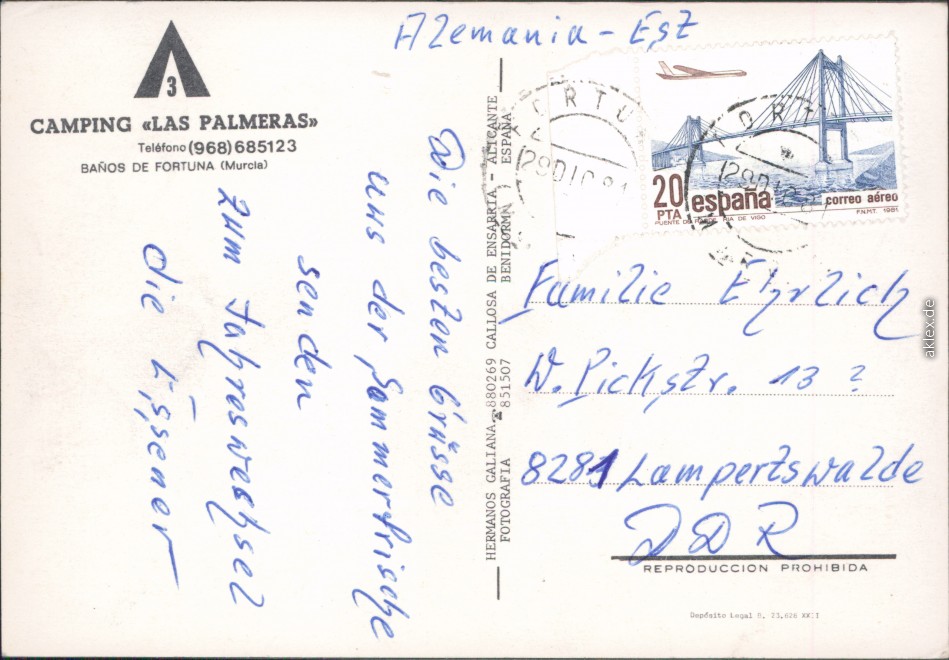 Alemania - Est
3
CAMPING «LAS PALMERAS»
Teléfono (968) 685123
BAÑOS DE FORTUNA (Murcia)
Die besten Grüsse
aus der Sommerfrische
senden
zum Jahreswechsel
die
HERMANOS GALIANA ☎ 880269 CALLOSA DE ENSARRIA - ALICANTE
FOTOGRAFIA 851507 BENIDORM ESPAÑA
20
PTA
españa
correo aéreo
PUENTE DE RANDE. RIA DE VIGO
F.N.M.T. 1981
Familie Ehrlich
W. Pickstr. 13 ?
8281 Lampertswalde
DDR
REPRODUCCION PROHIBIDA
Depósito Legal B. 23.628 XXII
aklex.de